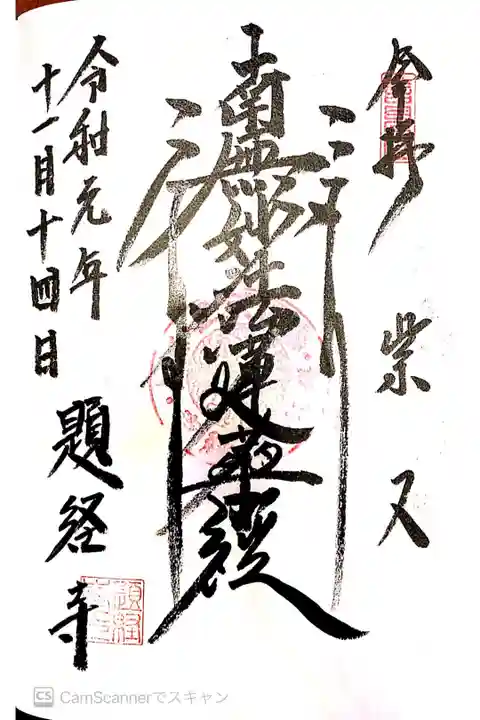 奉拝
柴又
南無妙法蓮華経
令和元年
十一月十四日
題経寺
CS CamScannerでスキャン